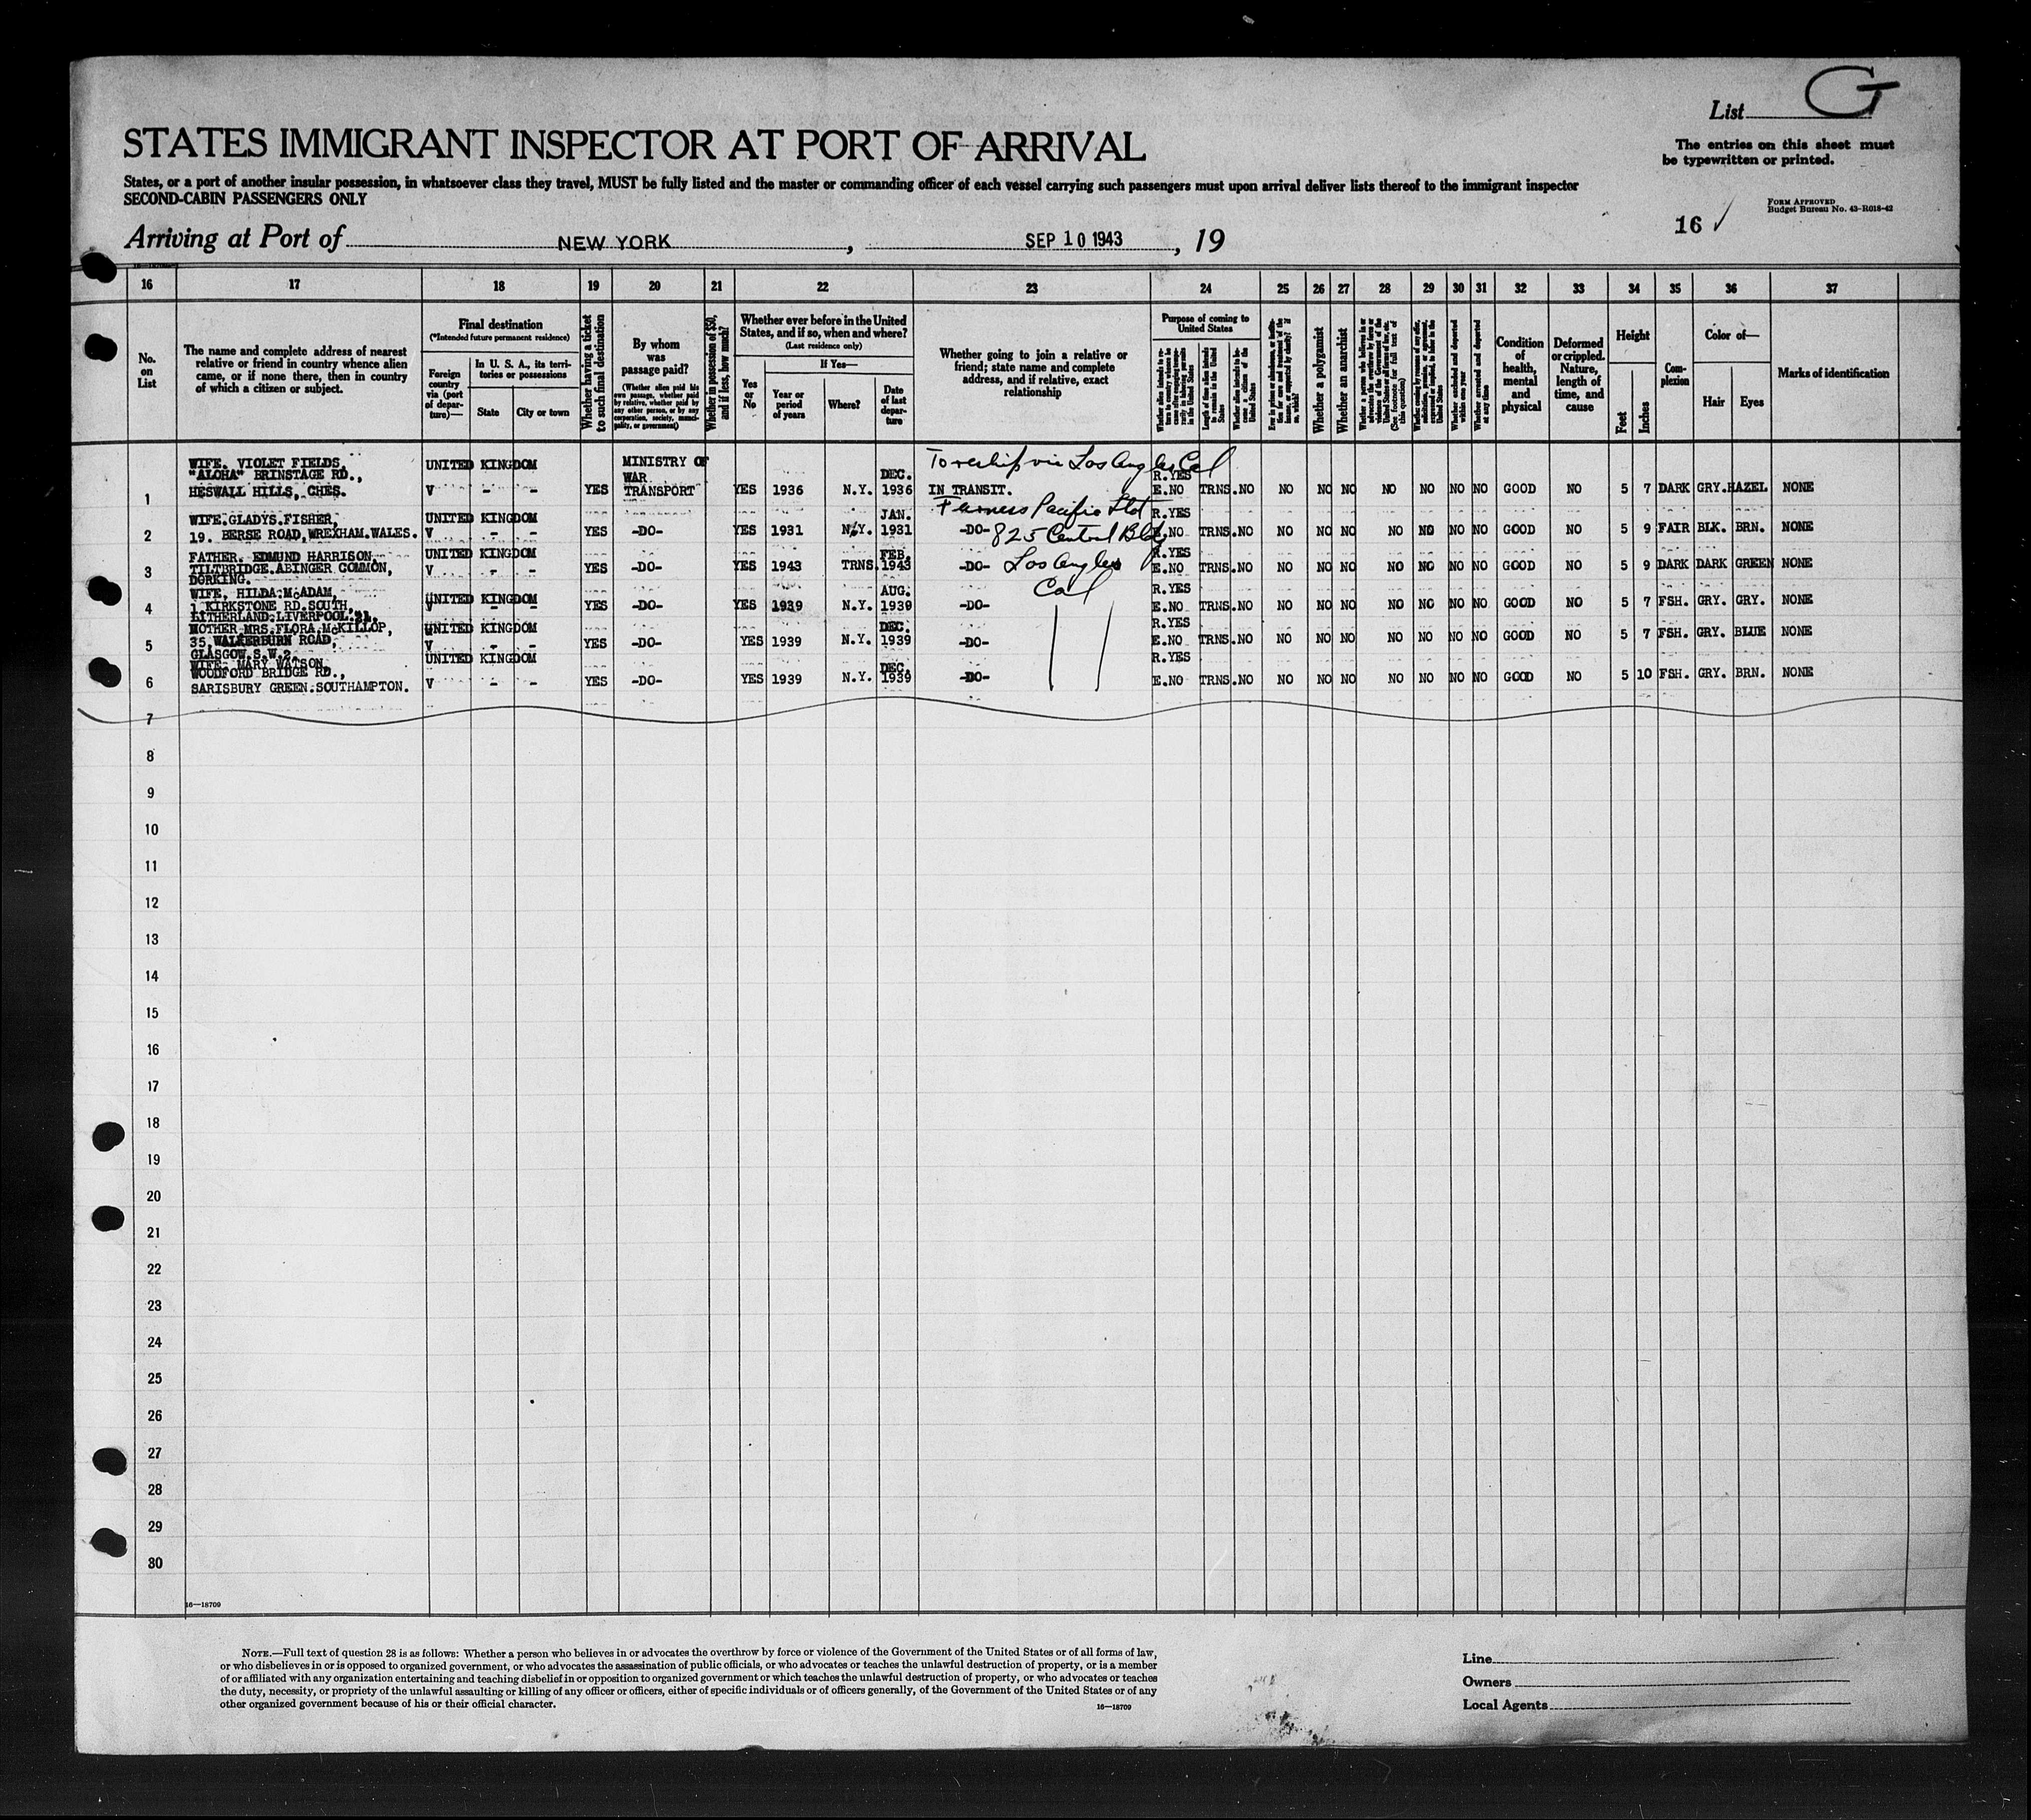 List G
STATES IMMIGRANT INSPECTOR AT PORT OF ARRIVAL
The entries on this sheet must
be typewritten or printed.
States, or a port of another insular possession, in whatsoever class they travel, MUST be fully listed and the master or commanding officer of each vessel carrying such passengers must upon arrival deliver lists thereof to the immigrant inspector
SECOND-CABIN PASSENGERS ONLY
FORM APPROVED
Budget Bureau No. 43-R018-42
16 ✓
Arriving at Port of NEW YORK, SEP 10 1943, 19
16 17 18 19 20 21 22 23 24 25 26 27 28 29 30 31 32 33 34 35 36 37
No.
on
List
The name and complete address of nearest
relative or friend in country whence alien
came, or if none there, then in country
of which a citizen or subject.
Final destination
(*Intended future permanent residence)
Foreign
country
via (port
of depar-
ture)—
In U. S. A., its terri-
tories or possessions
State
City or town
Whether having a ticket
to such final destination
By whom
was
passage paid?
(Whether alien paid his
own passage, whether paid
by relative, whether paid by
any other person, or by any
corporation, society, munici-
pality, or government)
Whether in possession of $50,
and if less, how much?
Whether ever before in the United
States, and if so, when and where?
(Last residence only)
Yes
or
No
If Yes—
Year or
period
of years
Where?
Date
of last
depar-
ture
Whether going to join a relative or
friend; state name and complete
address, and if relative, exact
relationship
Purpose of coming to
United States
Whether a polygamist
Whether an anarchist
(See footnote for full text of
this question)
Whether excluded and deported
within one year
Whether arrested and deported
at any time
Condition
of
health,
mental
and
physical
Deformed
or crippled.
Nature,
length of
time, and
cause
Height
Feet
Inches
Com-
plexion
Color of—
Hair
Eyes
Marks of identification
To reship via Los Angeles Cal
WIFE. VIOLET FIELDS, UNITED KINGDOM MINISTRY OF
"ALOHA" BRINSTAGE RD., WAR DEC. R.YES
1 HESWALL HILLS, CHES. V - - YES TRANSPORT YES 1936 N.Y. 1936 IN TRANSIT. E.NO TRNS. NO NO NO NO NO NO NO NO GOOD NO 5 7 DARK GRY. HAZEL NONE
Furness Pacific Ltd
WIFE. GLADYS. FISHER, UNITED KINGDOM JAN. R.YES
2 19. BERSE ROAD, WREXHAM. WALES. YES -DO- YES 1931 N.Y. 1931 -DO- 825 Central Bldg E.NO TRNS. NO NO NO NO NO NO NO NO GOOD NO 5 9 FAIR BLK. BRN. NONE
FATHER. EDMUND HARRISON UNITED KINGDOM FEB. R.YES
3 TILTBRIDGE. ABINGER COMMON, V - - YES -DO- YES 1943 TRNS. 1943 -DO- Los Angeles E.NO TRNS. NO NO NO NO NO NO NO NO GOOD NO 5 9 DARK DARK GREEN NONE
DORKING.
Cal
WIFE, HILDA. McADAM, UNITED KINGDOM AUG. R.YES
4 1 KIRKSTONE RD. SOUTH, V - - YES -DO- YES 1939 N.Y. 1939 -DO- E.NO TRNS. NO NO NO NO NO NO NO NO GOOD NO 5 7 FSH. GRY. GRY. NONE
LITHERLAND. LIVERPOOL. 21.
MOTHER MRS. FLORA McKILLOP, UNITED KINGDOM DEC. R.YES
5 35 WALKERBURN ROAD, V - - YES -DO- YES 1939 N.Y. 1939 -DO- E.NO TRNS. NO NO NO NO NO NO NO NO GOOD NO 5 7 FSH. GRY. BLUE NONE
GLASGOW. S.W.2.
WIFE. MARY WATSON, UNITED KINGDOM R.YES
WOODFORD BRIDGE RD., DEC.
6 SARISBURY GREEN. SOUTHAMPTON. V - - YES -DO- YES 1939 N.Y. 1939 -DO- E.NO TRNS. NO NO NO NO NO NO NO NO GOOD NO 5 10 FSH. GRY. BRN. NONE
7
8
9
10
11
12
13
14
15
16
17
18
19
20
21
22
23
24
25
26
27
28
29
30
16—18709
NOTE.—Full text of question 28 is as follows: Whether a person who believes in or advocates the overthrow by force or violence of the Government of the United States or of all forms of law,
or who disbelieves in or is opposed to organized government, or who advocates the assassination of public officials, or who advocates or teaches the unlawful destruction of property, or is a member
of or affiliated with any organization entertaining and teaching disbelief in or opposition to organized government or which teaches the unlawful destruction of property, or who advocates or teaches
the duty, necessity, or propriety of the unlawful assaulting or killing of any officer or officers, either of specific individuals or of officers generally, of the Government of the United States or of any
other organized government because of his or their official character.
16—18709
Line
Owners
Local Agents